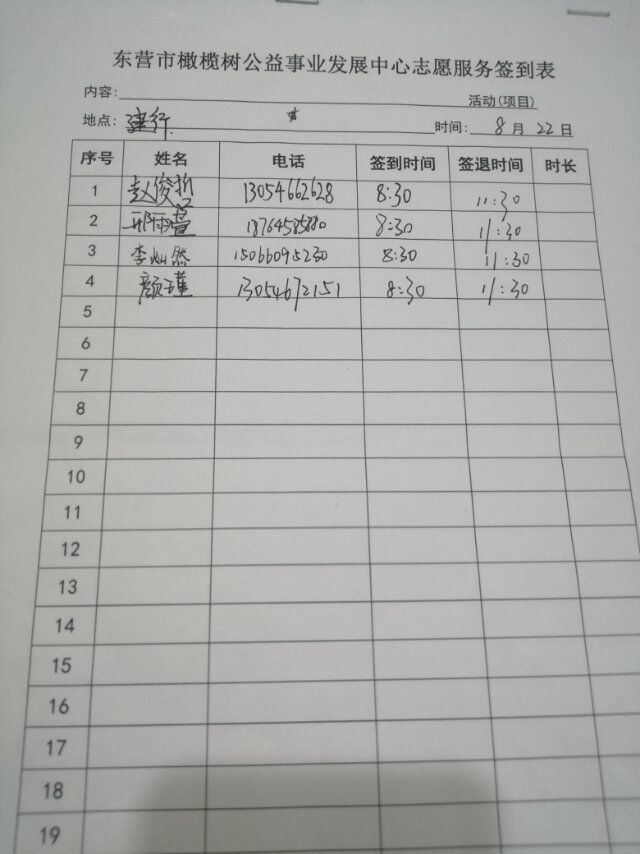 东营市橄榄树公益事业发展中心志愿服务签到表
内容： 活动(项目)
地点：建行. 时间： 8 月 22 日
序号 姓名 电话 签到时间 签退时间 时长
1 赵俊哲 13054662628 8:30 11:30
2 邢雨萱 8:30 11:30
3 李灿然 15066095230 8:30 11:30
4 颜瑾 13054672151 8:30 11:30
5
6
7
8
9
10
11
12
13
14
15
16
17
18
19